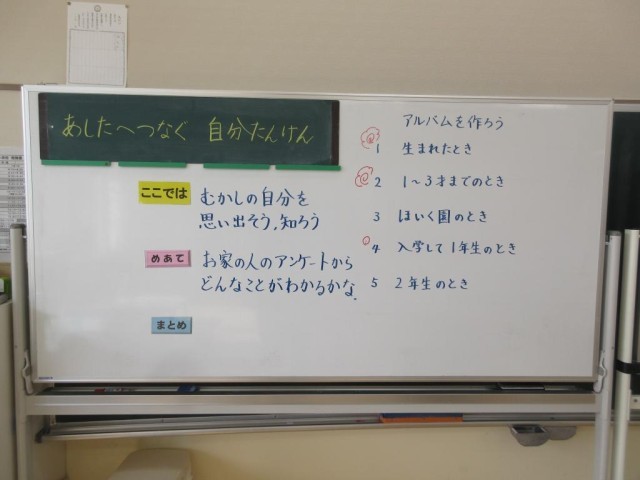 あしたへつなぐ 自分たんけん
ここでは
むかしの自分を
思い出そう、知ろう
めあて
お家の人のアンケートから
どんなことがわかるかな。
まとめ
アルバムを作ろう
1 生まれたとき
2 1〜3才までのとき
3 ほいく園のとき
4 入学して1年生のとき
5 2年生のとき